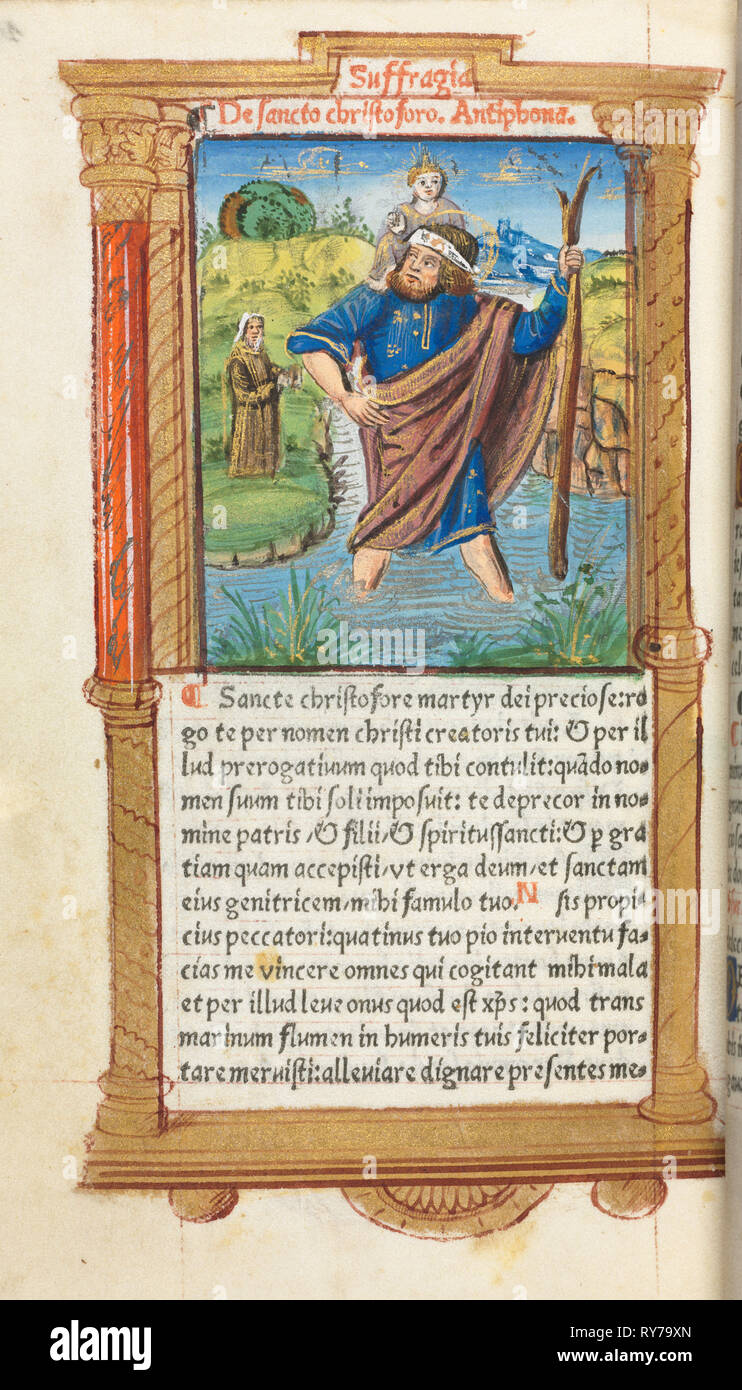 Suffragia
De sancto christoforo. Antiphona.
¶ Sancte christofore martyr dei preciose: ro
go te per nomen christi creatoris tui: & per il
lud prerogatiuum quod tibi contulit: quãdo no-
men suum tibi soli imposuit: te deprecor in no-
mine patris / & filii / & spiritussancti: & ꝑ gra
tiam quam accepisti / vt erga deum / et sanctam
eius genitricem / mihi famulo tuo. N sis propi-
cius peccatori: quatinus tuo pio interuentu fa-
cias me vincere omnes qui cogitant mihi mala
et per illud leue onus quod est xp̃s: quod trans
marinum flumen in humeris tuis feliciter por-
tare meruisti: alleuiare dignare presentes me-
alamy
Image ID: RY79XN
www.alamy.com